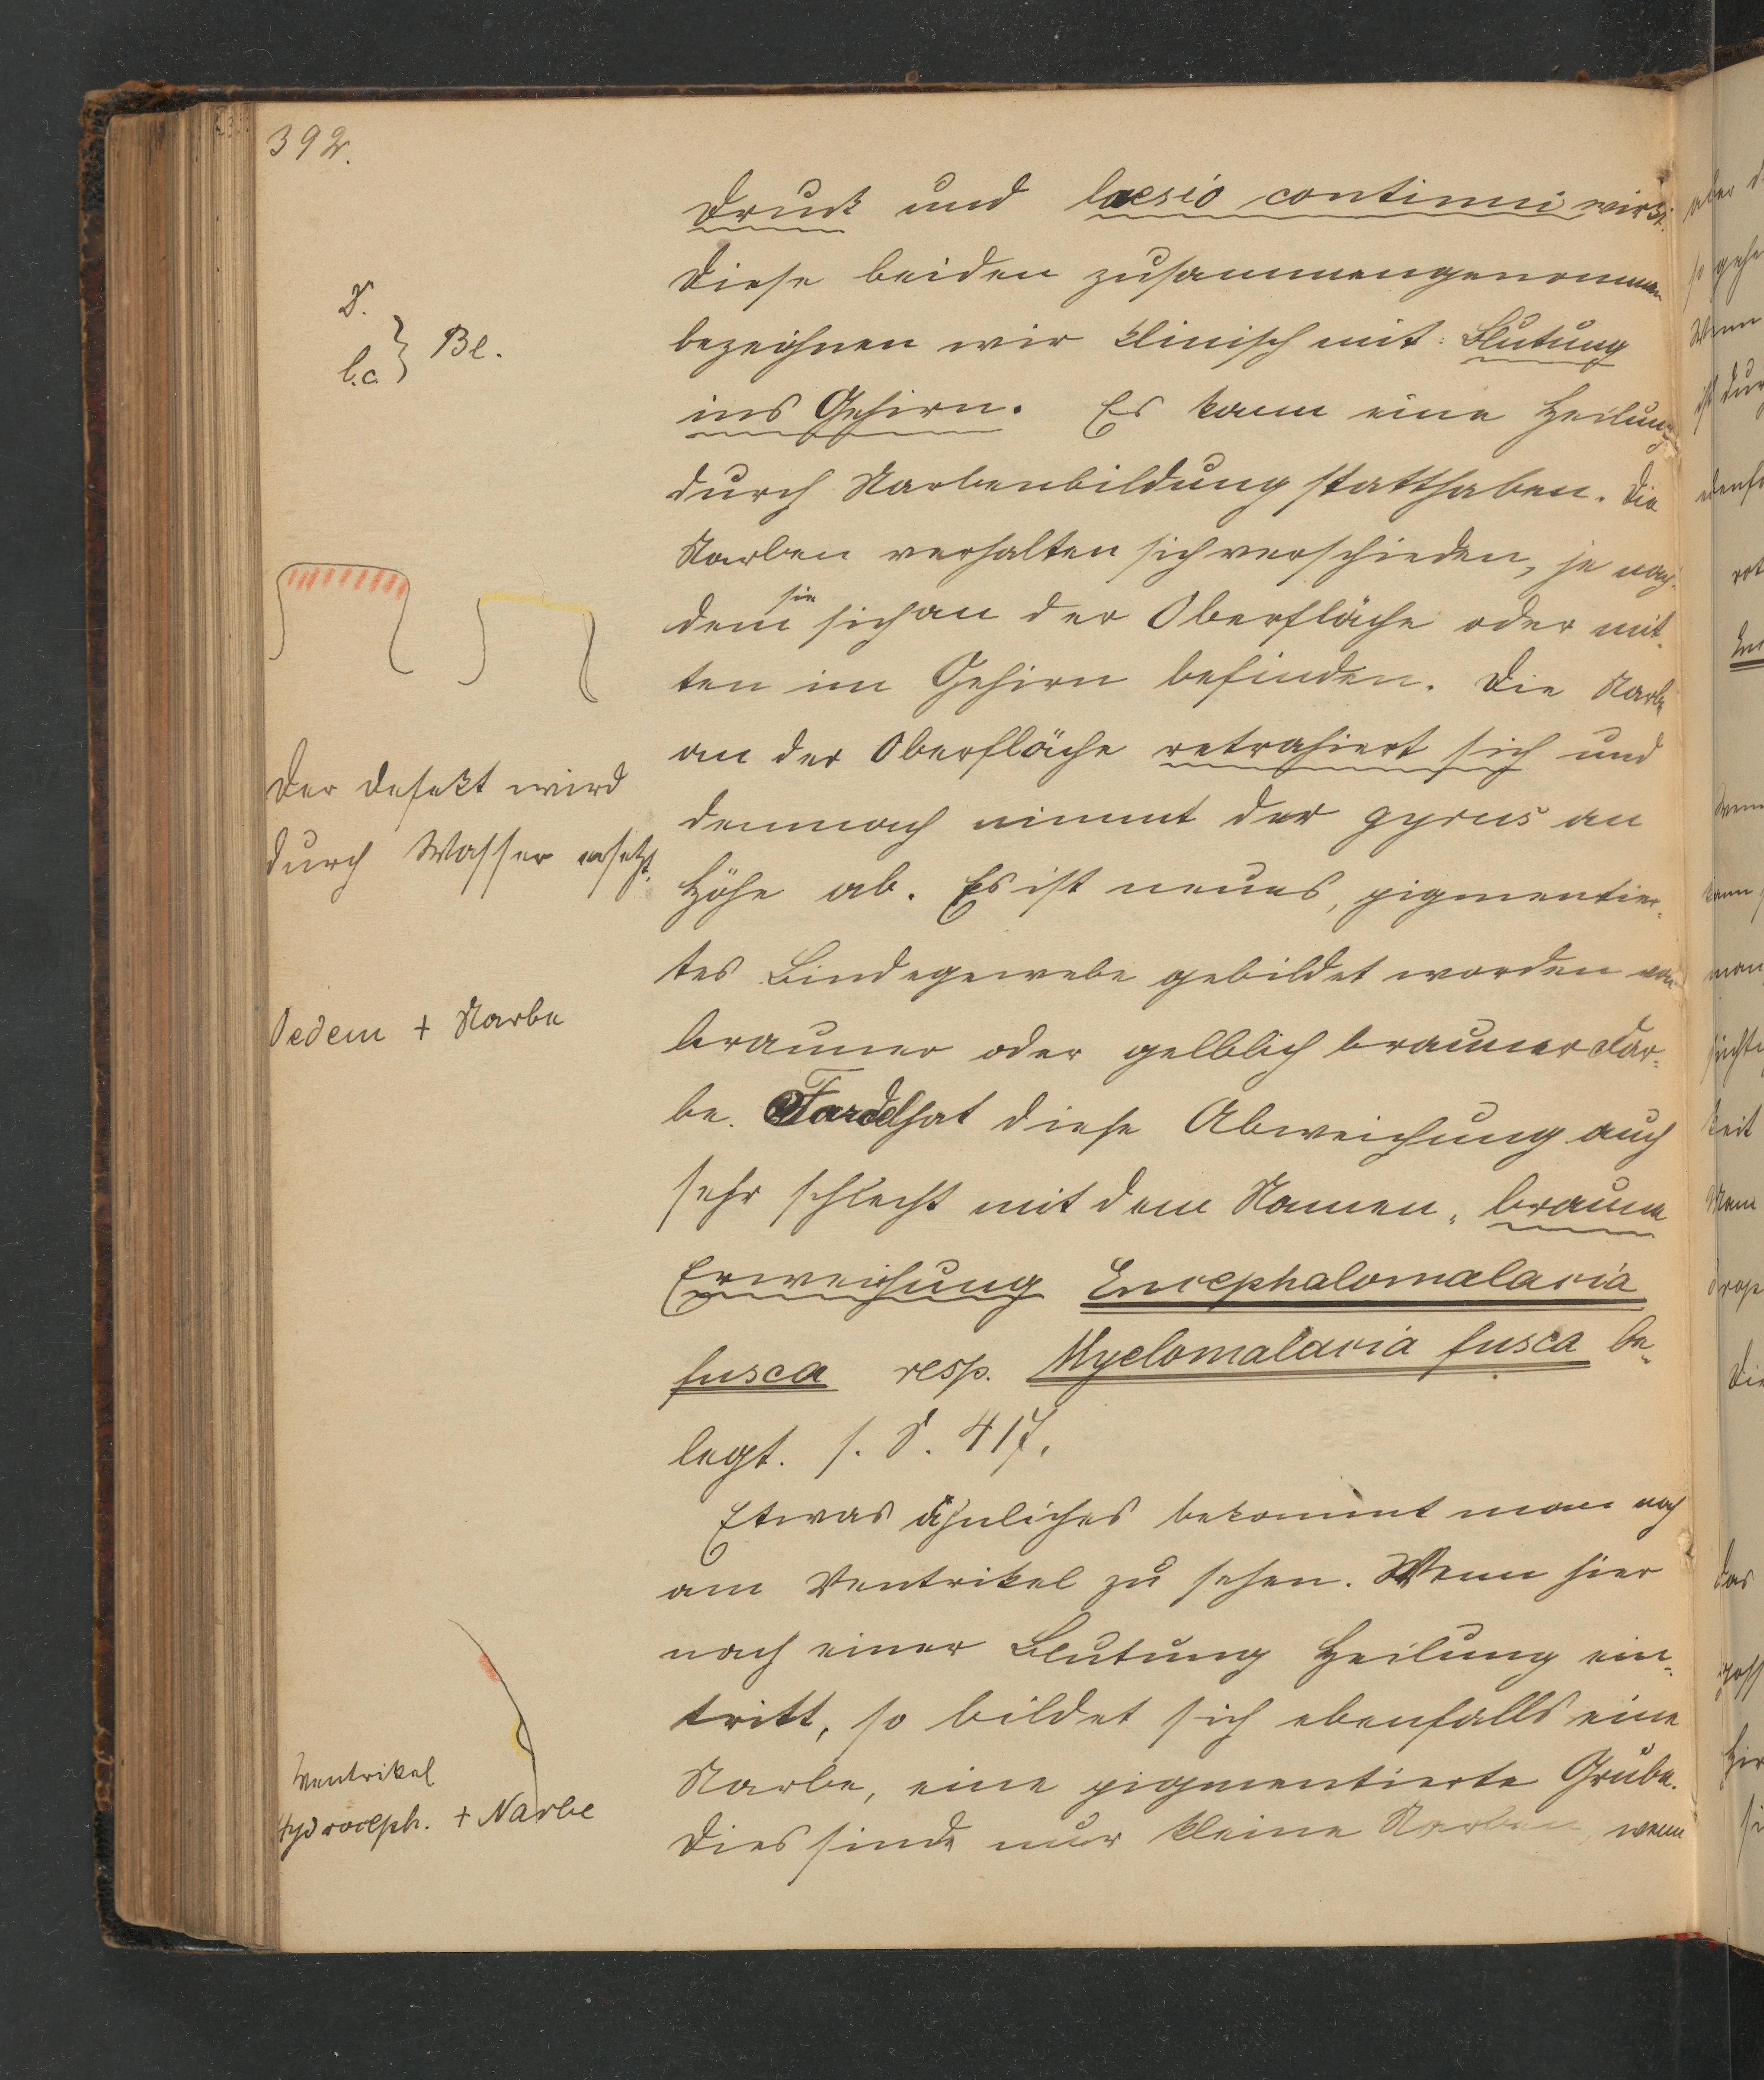 392.
Druck und laesio continui wirkt.
Diese beiden zusammengenommen
bezeichnen wir klinisch mit: Blutung
ins Gehirn. Es kann eine Heilung
durch Narbenbildung statthaben. Die
Narben verhalten sich verschieden, je nach-
dem sie sich an der Oberfläche oder mit-
ten im Gehirn befinden. Die Narbe
an der Oberfläche retrahiert sich und
demnach nimmt der gyrus an
Höhe ab. Es ist neues, pigmentier-
tes Bindegewebe gebildet worden von
brauner oder gelblich brauner Far-
be. Fardel hat diese Abweichung auch
sehr schlecht mit dem Namen „braune
Erweichung Encephalomalacia
fusca resp. Myelomalacia fusca be-
legt. s. S. 417.
Etwas ähnliches bekommt man noch
am Ventrikel zu sehen. Wenn hier
nach einer Blutung Heilung ein-
tritt, so bildet sich ebenfalls eine
Narbe, eine pigmentierte Grube.
Dies sind nur kleine Narben, wenn
D.
l.c. } Bl.
Der Defekt wird
durch Wasser ersetzt.
Oedem + Narbe
Ventrikel
Hydroceph. + Narbe